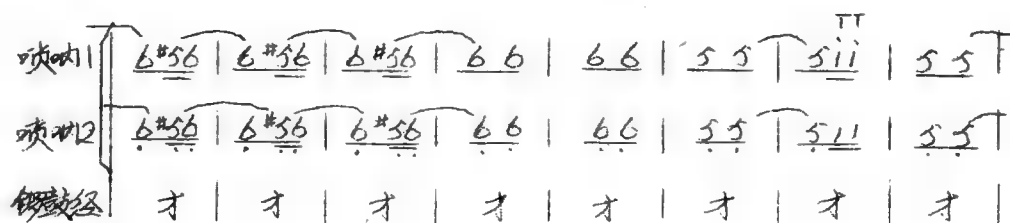 TT
唢呐1 | 6 #56 | 6 #56 | 6 #56 | 6 6 | 6 6 | 5 5 | 5 i i | 5 5 |
唢呐2 | 6 #56 | 6 #56 | 6 #56 | 6 6 | 6 6 | 5 5 | 5 1 1 | 5 5 |
锣鼓经 | 才 | 才 | 才 | 才 | 才 | 才 | 才 | 才 |